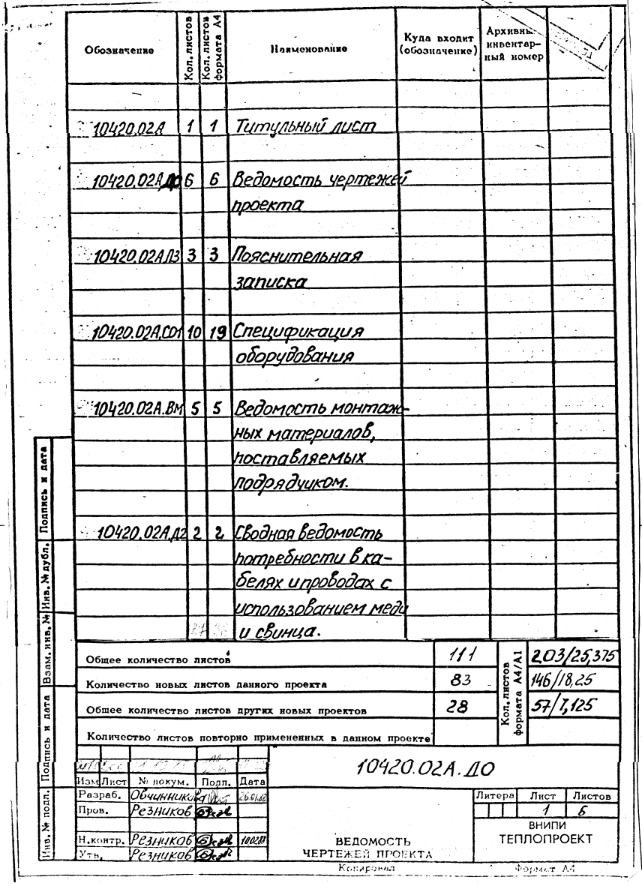 Обозначение Кол. листов Кол. листов формата А4 Наименование Куда входит (обозначение) Архивный инвентарный номер
10420.02А 1 1 Титульный лист
10420.02А.ДО 6 6 Ведомость чертежей
проекта
10420.02А.ПЗ 3 3 Пояснительная
записка
10420.02А.СО1 10 19 Спецификация
оборудования
10420.02А.ВМ 5 5 Ведомость монтаж-
ных материалов,
поставляемых
подрядчиком.
10420.02А.Д2 2 2 Сводная ведомость
потребности в ка-
белях и проводах с
использованием меди
и свинца.
Общее количество листов 111 Кол. листов формата А4/А1 203/25,375
Количество новых листов данного проекта 83 146/18,25
Общее количество листов других новых проектов 28 57/7,125
Количество листов повторно примененных в данном проекте
10420.02А.ДО
Изм Лист № докум. Подп. Дата
Разраб. Овчинникова
Пров. Резников
Н.контр. Резников
Утв. Резников
ВЕДОМОСТЬ
ЧЕРТЕЖЕЙ ПРОЕКТА
Литера Лист Листов
1 6
ВНИПИ
ТЕПЛОПРОЕКТ
Копировал Формат А4
Инв. № подл. Подпись и дата Взам. инв. № Инв. № дубл. Подпись и дата